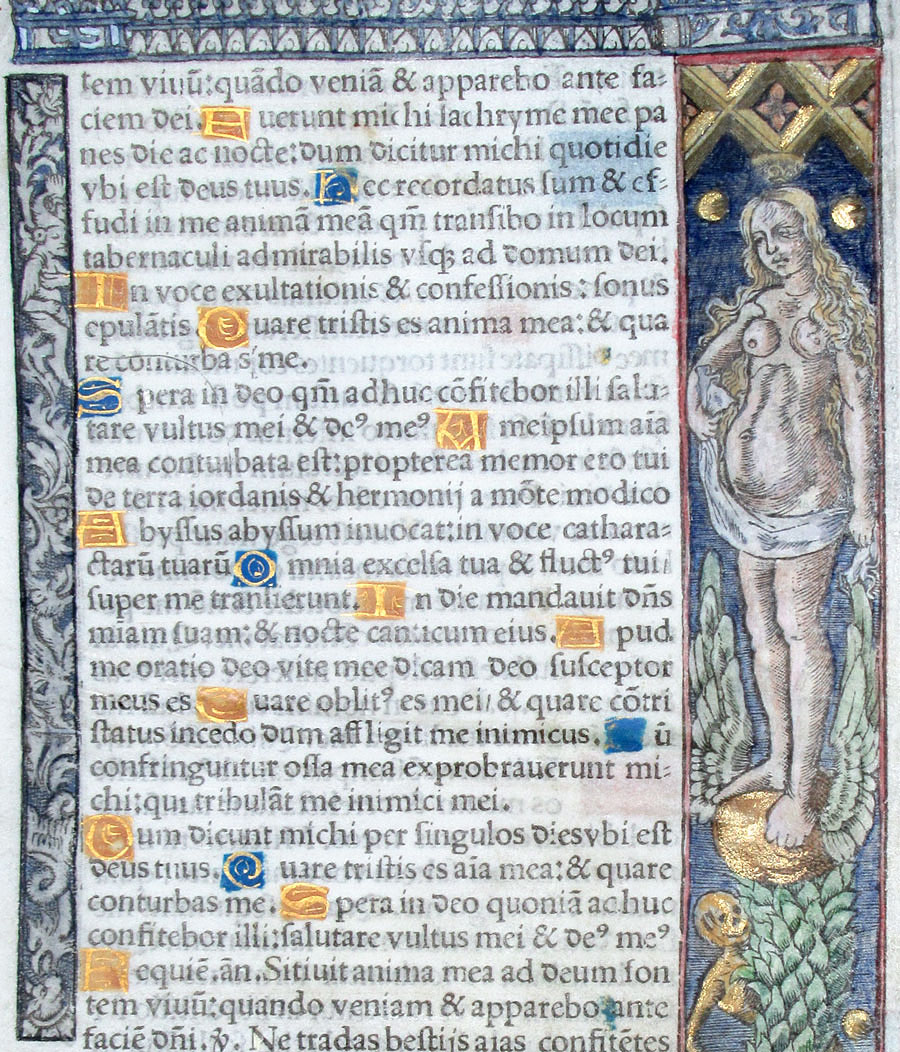 tem viuū:quādo veniā & apparebo ante fa-
ciem dei. A uerunt michi lachryme mee pa
nes die ac nocte:dum dicitur michi quotidie
vbi est deus tuus. H ec recordatus sum & ef-
fudi in me animā meā qm̄ transibo in locum
tabernaculi admirabilis vsqꝫ ad domum dei.
I n voce exultationis & confessionis: sonus
epulātis Q uare tristis es anima mea:& qua
re conturbas me.
S pera in deo qm̄ adhuc cōfitebor illi salu-
tare vultus mei & deꝰ meꝰ A meipsum aīa
mea conturbata est:propterea memor ero tui
de terra iordanis & hermonij a mōte modico
A byssus abyssum inuocat:in voce cathara-
ctarū tuarū O mnia excelsa tua & fluctꝰ tui/
super me transierunt. I n die mandauit dn̄s
miam suam:& nocte canticum eius. A pud
me oratio deo vite mee dicam deo susceptor
meus es Q uare oblitꝰ es mei/ & quare cōtri
status incedo dum affligit me inimicus. ū
confringuntur ossa mea exprobrauerunt mi-
chi:qui tribulāt me inimici mei.
C um dicunt michi per singulos dies vbi est
deus tuus. Q uare tristis es aīa mea:& quare
conturbas me. S pera in deo quoniā adhuc
confitebor illi:salutare vultus mei & deꝰ meꝰ
R equiē. ān. Sitiuit anima mea ad deum fon
tem viuū:quando veniam & apparebo ante
faciē dn̄i. ꝟ. Ne tradas bestijs aīas confitētes